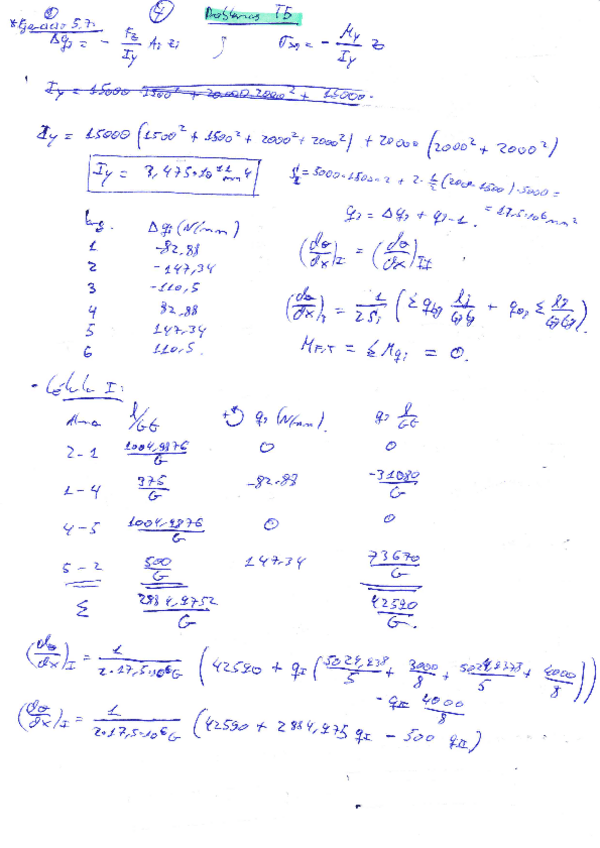 ① ④ Problemas T5
* Ejercicio 5.7:
Δq_j = - F_z/I_y A_j z_j ; σ_xj = - M_y/I_y z
I_y = 15000 (1500² + 1500² + 2000² + 2000²) + 20000 (2000² + 2000²)
I_y = 3,475·10¹¹ mm⁴
= 5000·1500·2 + 2·1/2 (2000-1500)·5000 =
= 17,5·10⁶ mm²
q_j = Δq_j + q_j-1.
Larg. Δq_j (N/mm)
1 -82,88
2 -147,34
3 -110,5
4 82,88
5 147,34
6 110,5.
(dθ/dx)_I = (dθ/dx)_II
(dθ/dx)_j = 1/2S_j (Σ q_bj l_j/G_j t_j + q_0j Σ l_j/G_j t_j).
M_F,T = Σ M_qj = 0.
- Célula I:
Alma l/Gt +↺ q_j (N/mm). q_j l/Gt
2-1 1004,9876/G 0 0
1-4 375/G -82,88 -31080/G
4-5 1004,9876/G 0 0
5-2 500/G 147,34 73670/G
Σ 2884,9752/G 42590/G.
(dθ/dx)_I = 1/2·17,5·10⁶G (42590 + q_I (5024,938/5 + 3000/8 + 5024,9378/5 + 4000/8))
- q_II 4000/8
(dθ/dx)_I = 1/2·17,5·10⁶G (42590 + 2884,975 q_I - 500 q_II)